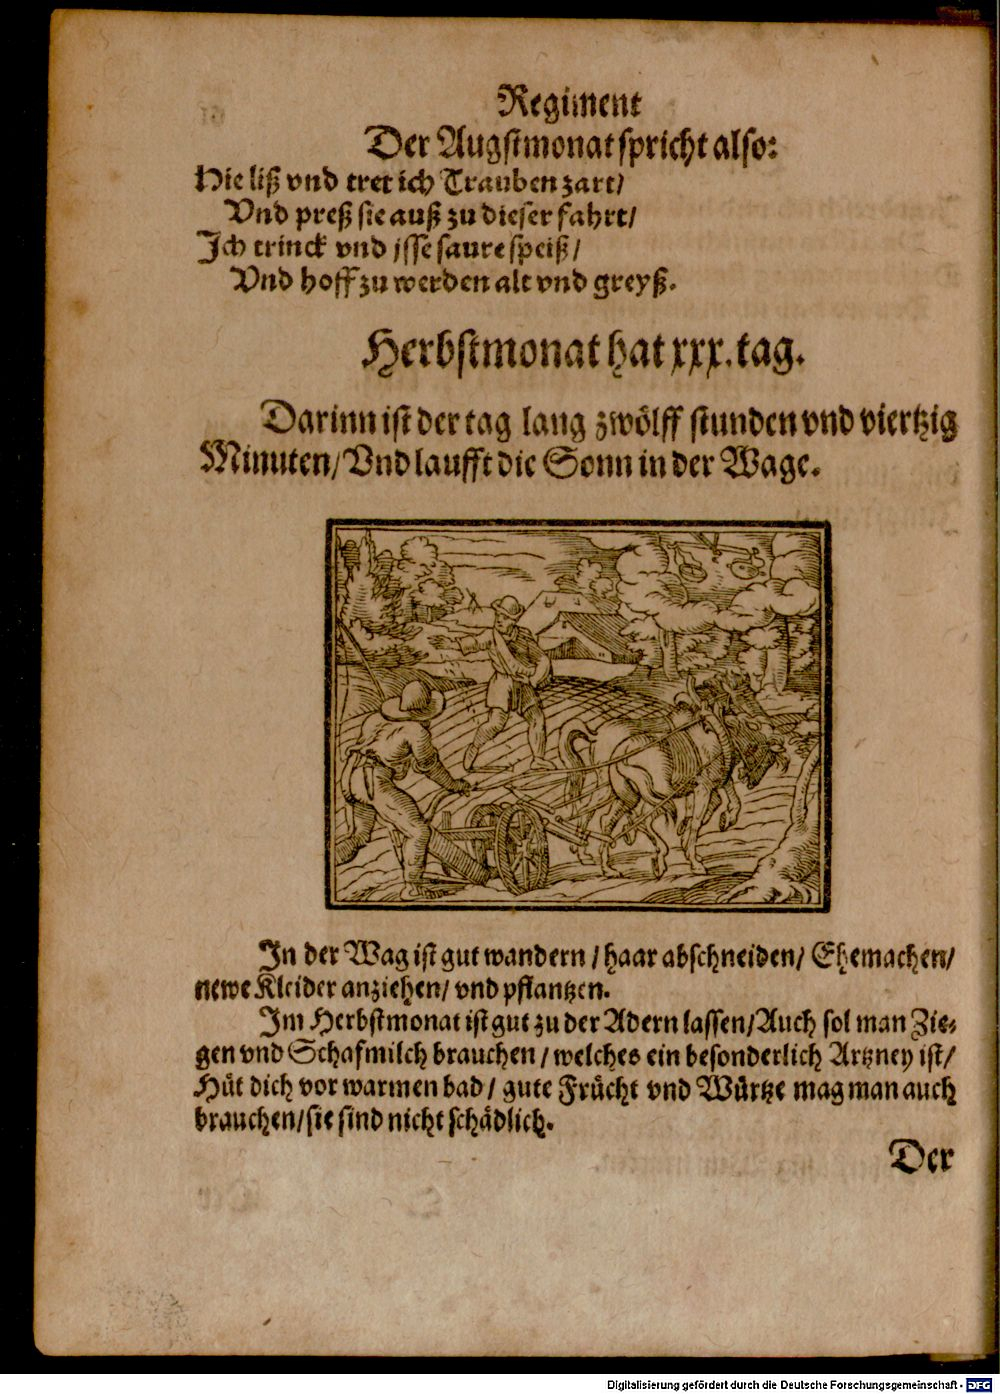 Regiment
Der Augstmonat spricht also:
Hie liß vnd tret ich Trauben zart/
Vnd preß sie auß zu dieser fahrt/
Ich trinck vnd jsse saure speiß/
Vnd hoff zu werden alt vnd greyß.
Herbstmonat hat xxx. tag.
Darinn ist der tag lang zwölff stunden vnd viertzig
Minuten/ Vnd laufft die Sonn in der Wage.
In der Wag ist gut wandern / haar abschneiden/ Ehemachen/
newe Kleider anziehen/ vnd pflantzen.
Im Herbstmonat ist gut zu der Adern lassen/ Auch sol man Zie-
gen vnd Schafmilch brauchen / welches ein besonderlich Artzney ist/
Hüt dich vor warmen bad / gute Frücht vnd Würtze mag man auch
brauchen/ sie sind nicht schädlich.
Der
Digitalisierung gefördert durch die Deutsche Forschungsgemeinschaft - DFG